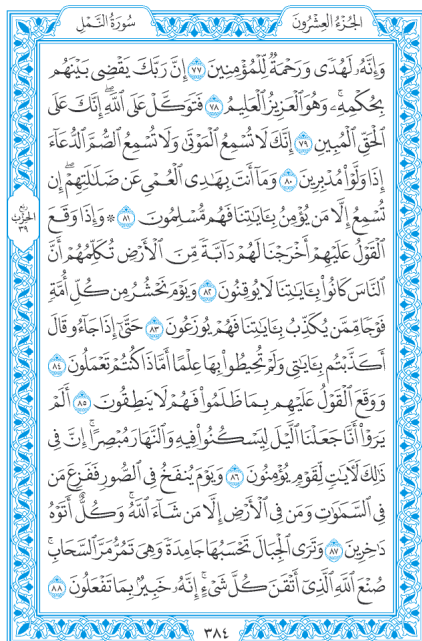 الجُزْءُ العِشْرُونَ
سُورَةُ النَّمْلِ
وَإِنَّهُۥ لَهُدًى وَرَحْمَةٌ لِّلْمُؤْمِنِينَ ٧٧ إِنَّ رَبَّكَ يَقْضِى بَيْنَهُم
بِحُكْمِهِۦۚ وَهُوَ ٱلْعَزِيزُ ٱلْعَلِيمُ ٧٨ فَتَوَكَّلْ عَلَى ٱللَّهِۖ إِنَّكَ عَلَى
ٱلْحَقِّ ٱلْمُبِينِ ٧٩ إِنَّكَ لَا تُسْمِعُ ٱلْمَوْتَىٰ وَلَا تُسْمِعُ ٱلصُّمَّ ٱلدُّعَآءَ
إِذَا وَلَّوْا۟ مُدْبِرِينَ ٨٠ وَمَآ أَنتَ بِهَٰدِى ٱلْعُمْىِ عَن ضَلَٰلَتِهِمْۖ إِن
تُسْمِعُ إِلَّا مَن يُؤْمِنُ بِـَٔايَٰتِنَا فَهُم مُّسْلِمُونَ ٨١ ۞ وَإِذَا وَقَعَ
ٱلْقَوْلُ عَلَيْهِمْ أَخْرَجْنَا لَهُمْ دَآبَّةً مِّنَ ٱلْأَرْضِ تُكَلِّمُهُمْ أَنَّ
ٱلنَّاسَ كَانُوا۟ بِـَٔايَٰتِنَا لَا يُوقِنُونَ ٨٢ وَيَوْمَ نَحْشُرُ مِن كُلِّ أُمَّةٍ
فَوْجًا مِّمَّن يُكَذِّبُ بِـَٔايَٰتِنَا فَهُمْ يُوزَعُونَ ٨٣ حَتَّىٰٓ إِذَا جَآءُو قَالَ
أَكَذَّبْتُم بِـَٔايَٰتِى وَلَمْ تُحِيطُوا۟ بِهَا عِلْمًا أَمَّاذَا كُنتُمْ تَعْمَلُونَ ٨٤
وَوَقَعَ ٱلْقَوْلُ عَلَيْهِم بِمَا ظَلَمُوا۟ فَهُمْ لَا يَنطِقُونَ ٨٥ أَلَمْ
يَرَوْا۟ أَنَّا جَعَلْنَا ٱلَّيْلَ لِيَسْكُنُوا۟ فِيهِ وَٱلنَّهَارَ مُبْصِرًاۚ إِنَّ فِى
ذَٰلِكَ لَـَٔايَٰتٍ لِّقَوْمٍ يُؤْمِنُونَ ٨٦ وَيَوْمَ يُنفَخُ فِى ٱلصُّورِ فَفَزِعَ مَن
فِى ٱلسَّمَٰوَٰتِ وَمَن فِى ٱلْأَرْضِ إِلَّا مَن شَآءَ ٱللَّهُۚ وَكُلٌّ أَتَوْهُ
دَٰخِرِينَ ٨٧ وَتَرَى ٱلْجِبَالَ تَحْسَبُهَا جَامِدَةً وَهِىَ تَمُرُّ مَرَّ ٱلسَّحَابِۚ
صُنْعَ ٱللَّهِ ٱلَّذِىٓ أَتْقَنَ كُلَّ شَىْءٍۚ إِنَّهُۥ خَبِيرٌۢ بِمَا تَفْعَلُونَ ٨٨
ربع
الحزب
٣٩
٣٨٤